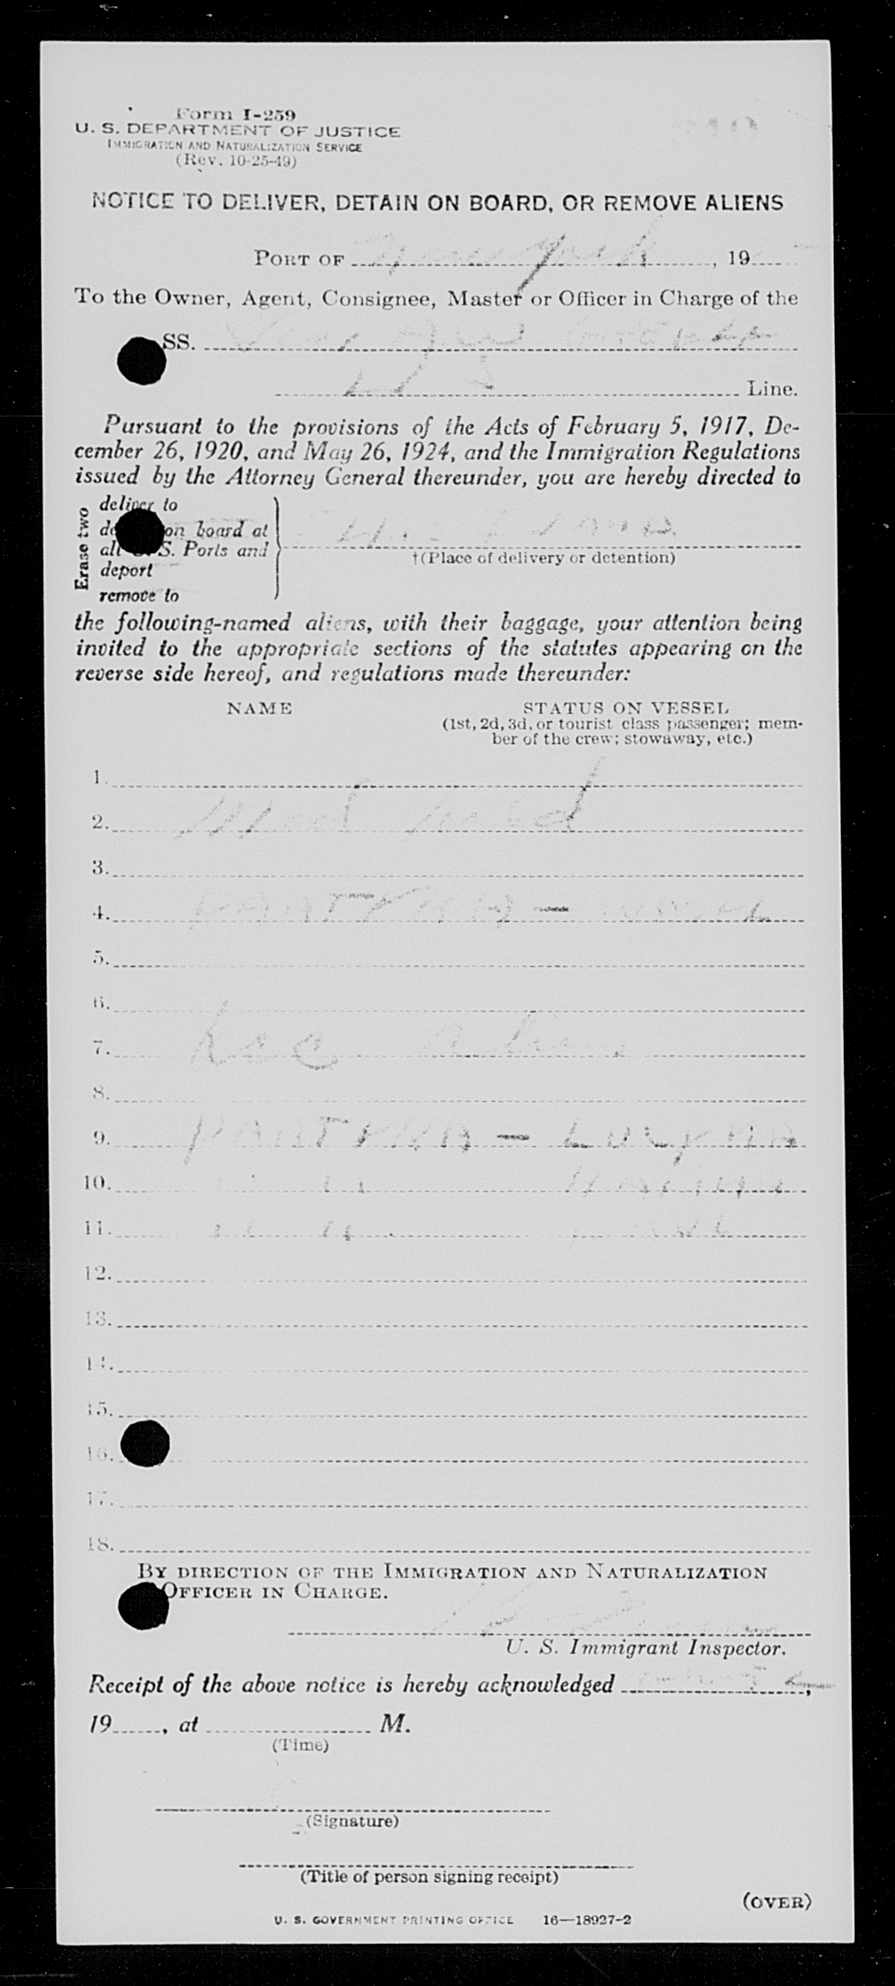 Form I-259
U. S. DEPARTMENT OF JUSTICE
IMMIGRATION AND NATURALIZATION SERVICE
(Rev. 10-25-49)
NOTICE TO DELIVER, DETAIN ON BOARD, OR REMOVE ALIENS
PORT OF New York, 19
To the Owner, Agent, Consignee, Master or Officer in Charge of the
SS.
Line.
Pursuant to the provisions of the Acts of February 5, 1917, De-
cember 26, 1920, and May 26, 1924, and the Immigration Regulations
issued by the Attorney General thereunder, you are hereby directed to
Erase two
deliver to
on board at
all S. Ports and
deport
remove to
†(Place of delivery or detention)
the following-named aliens, with their baggage, your attention being
invited to the appropriate sections of the statutes appearing on the
reverse side hereof, and regulations made thereunder:
NAME STATUS ON VESSEL
(1st, 2d, 3d, or tourist class passenger; mem-
ber of the crew; stowaway, etc.)
1.
2. Med
3.
4. PARTYKA -
5.
6.
7.
8.
9. PARTYKA - LUCYNA
10.
11.
12.
13.
14.
15.
16.
17.
18.
BY DIRECTION OF THE IMMIGRATION AND NATURALIZATION
OFFICER IN CHARGE.
U. S. Immigrant Inspector.
Receipt of the above notice is hereby acknowledged
19, at M.
(Time)
(Signature)
(Title of person signing receipt)
(OVER)
U. S. GOVERNMENT PRINTING OFFICE 16—18927-2